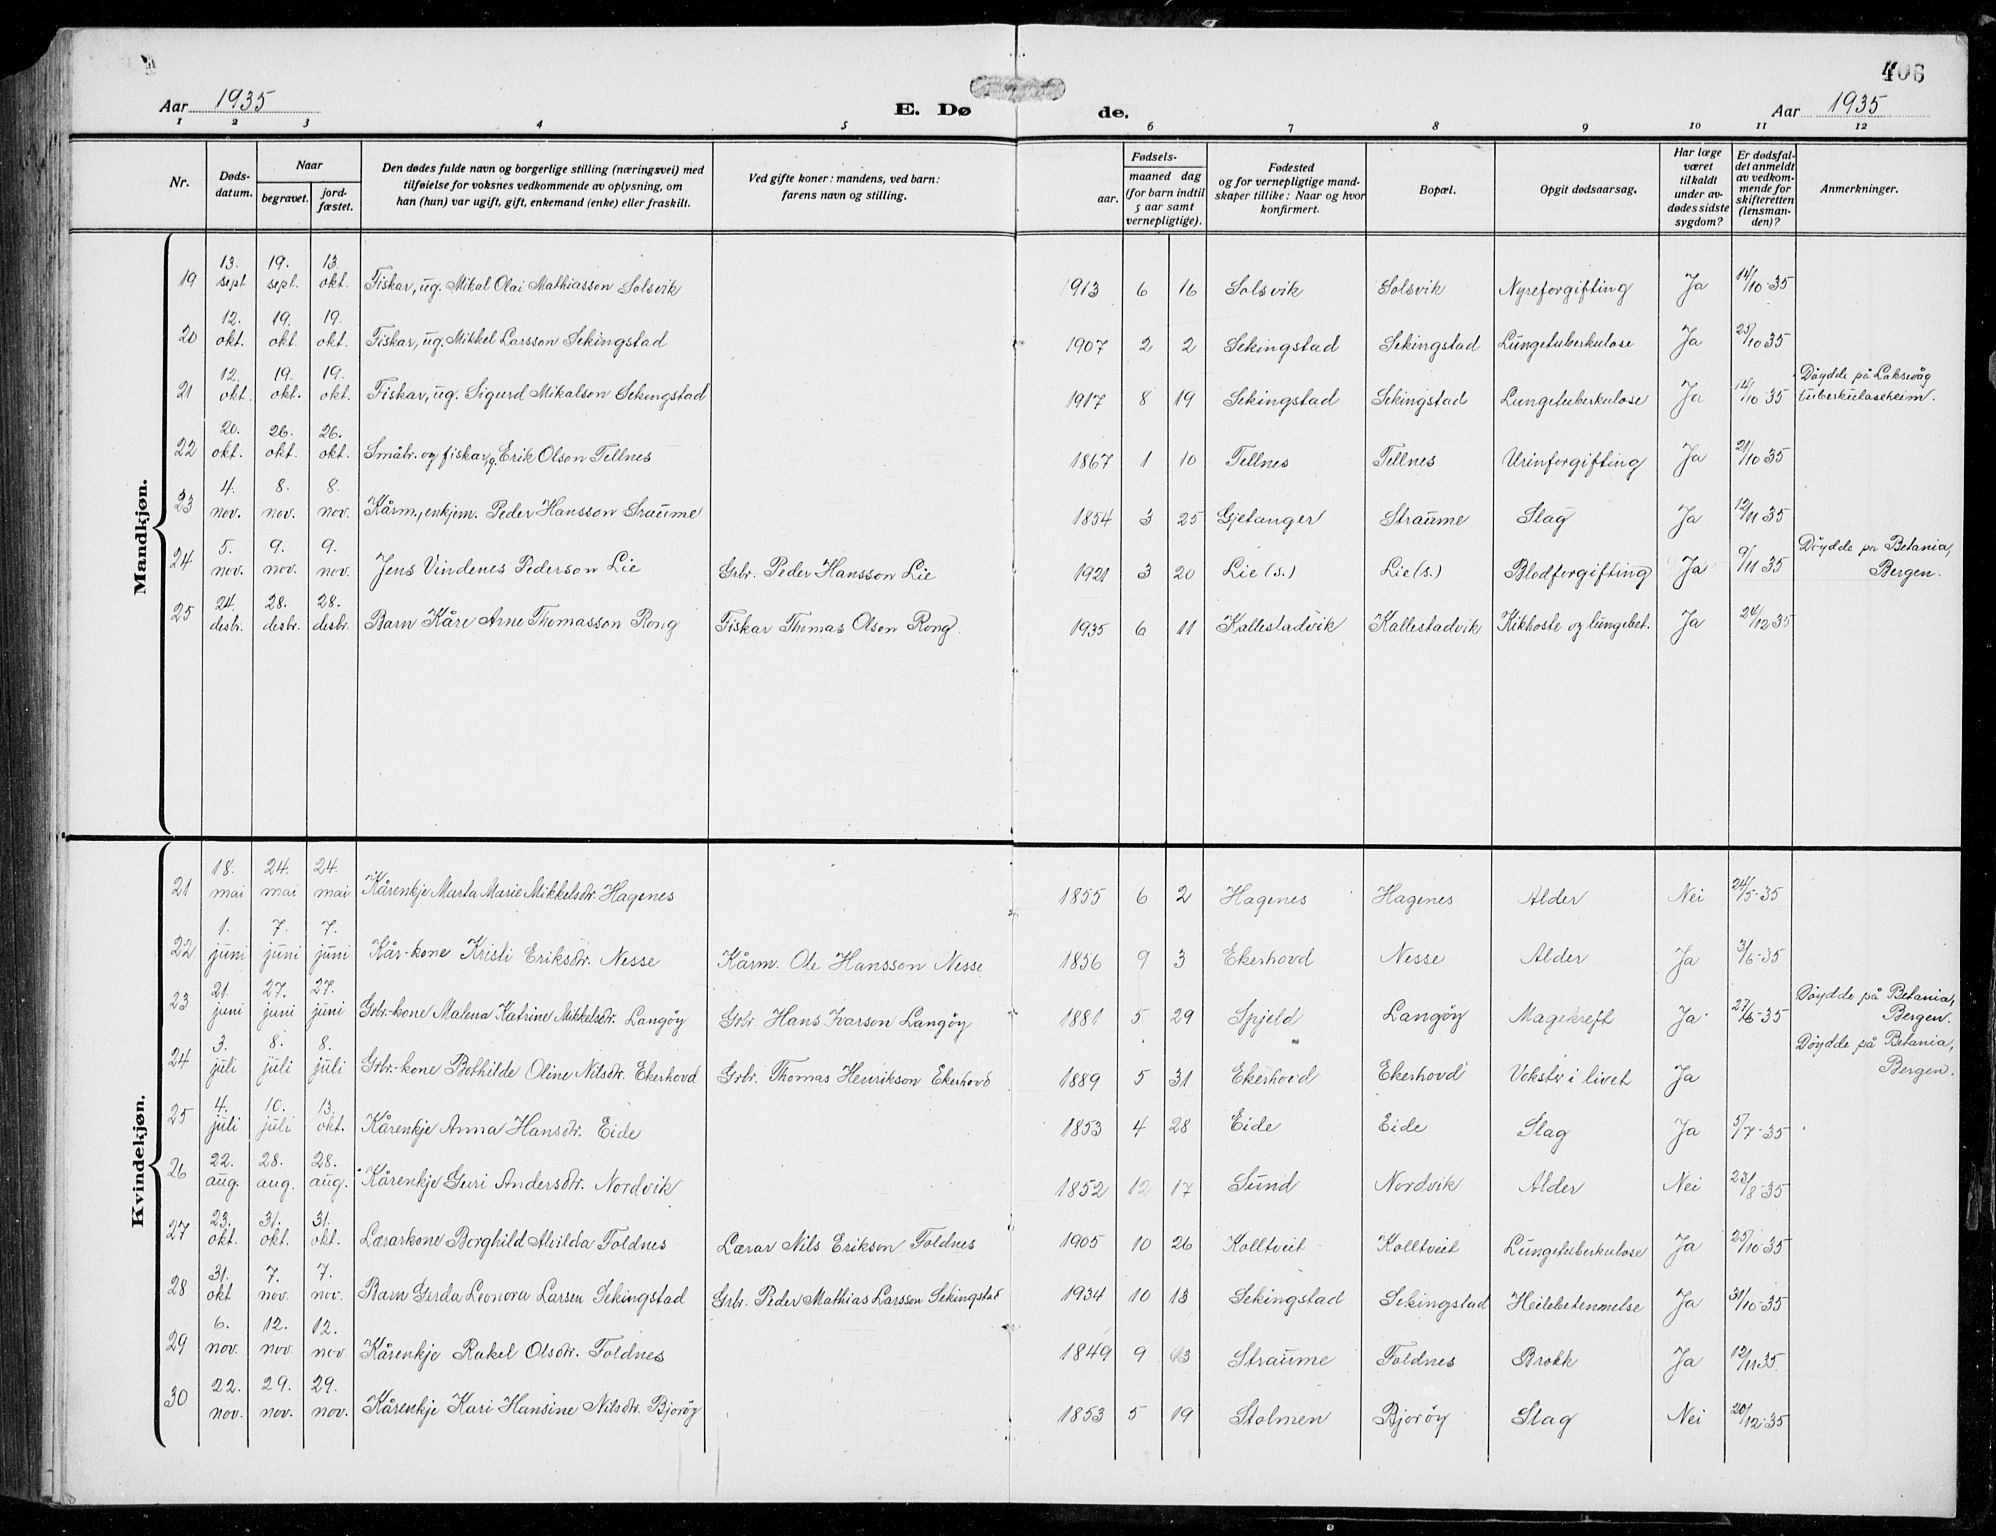 406
Aar 1935 E. Døde. Aar 1935
1 2 3 4 5 6 7 8 9 10 11 12
Nr. | Døds-datum. | Naar begravet. | jord-fæstet. | Den dødes fulde navn og borgerlige stilling (næringsvei) med tilføielse for voksnes vedkommende av oplysning, om han (hun) var ugift, gift, enkemand (enke) eller fraskilt. | Ved gifte koner: mandens, ved barn: farens navn og stilling. | Fødsels- aar. | maaned dag (for barn indtil 5 aar samt vernepligtige). | Fødested og for vernepligtige mandskaper tillike: Naar og hvor konfirmert. | Bopæl. | Opgit dødsaarsag. | Har læge været tilkaldt under avdødes sidste sygdom? | Er dødsfaldet anmeldt av vedkommende for skifteretten (lensmanden)? | Anmerkninger.
Mandkjøn.
19 | 13. sept. | 19. sept. | 13. okt. | Fiskar, ug. Mikal Olai Mathiasson Solsvik | 1913 | 6 | 16 | Solsvik | Solsvik | Nyreforgifting | Ja | 14/10-35
20 | 12. okt. | 19. okt. | 19. okt. | Fiskar, ug. Mikkel Larsson Sekingstad | 1907 | 2 | 2 | Sekingstad | Sekingstad | Lungetuberkulose | Ja | 25/10 35
21 | 12. okt. | 19. okt. | 19. okt. | Fiskar, ug. Sigurd Mikalson Sekingstad | 1917 | 8 | 19 | Sekingstad | Sekingstad | Lungetuberkulose | Ja | 14/10 35 | Döydde på Laksevåg tuberkuloseheim.
22 | 20. okt. | 26. okt. | 26. okt. | Småbr. og fiskar, g. Erik Olson Tellnes | 1867 | 1 | 10 | Tellnes | Tellnes | Urinforgifting | Ja | 21/10 35
23 | 4. nov. | 8. nov. | 8. nov. | Kårm., enkjem. Peder Hansson Straume | 1854 | 3 | 25 | Gjetanger | Straume | Slag | Ja | 12/11 35
24 | 5. nov. | 9. nov. | 9. nov. | Jens Vindenes Pederson Lie | Grbr. Peder Hansson Lie | 1921 | 3 | 20 | Lie (s.) | Lie (s.) | Blodforgifting | Ja | 9/11 35 | Döydde på Betania, Bergen.
25 | 24. desbr. | 28. desbr. | 28. desbr. | Barn Kåre Arne Thomasson Rong | Fiskar Thomas Olson Rong. | 1935 | 6 | 11 | Kallestadvik | Kallestadvik | Kikhoste og lungebet. | Ja | 24/12 35
Kvindekjøn.
21 | 18. mai | 24. mai | 24. mai | Kårenkje Marta Marie Mikkelsdtr. Hagenes | 1855 | 6 | 2 | Hagenes | Hagenes | Alder | Nei | 24/5-35
22 | 1. juni | 7. juni | 7. juni | Kår-kone Kristi Eriksdtr. Nesse | Kårm. Ole Hansson Nesse | 1856 | 9 | 3 | Ekerhovd | Nesse | Alder | Ja | 3/6-35
23 | 21. juni | 27. juni | 27. juni | Grbr.-kone Malena Katrine Mikkelsdtr. Langöy | Grbr. Hans Ivarson Langöy | 1881 | 5 | 29 | Spjeld | Langöy | Magekreft | Ja | 27/6-35 | Döydde på Betania, Bergen.
24 | 3. juli | 8. juli | 8. juli | Grbr.-kone Bothilde Oline Nilsdtr. Ekerhovd | Grbr. Thomas Henrikson Ekerhovd | 1889 | 5 | 31 | Ekerhovd | Ekerhovd | Vokstr i livet | Ja | Döydde på Betania, Bergen.
25 | 4. juli | 10. juli | 13. okt. | Kårenkje Anna Hansdtr. Eide | 1853 | 4 | 28 | Eide | Eide | Slag | Ja | 5/7-35
26 | 22. aug. | 28. aug. | 28. aug. | Kårenkje Guri Andersdtr. Nordvik | 1852 | 12 | 17 | Sund | Nordvik | Alder | Nei | 23/8-35
27 | 23. okt. | 31. okt. | 31. okt. | Lærarkone Borghild Alvilda Foldnes | Lærar Nils Erikson Foldnes | 1905 | 10 | 26 | Kolltveit | Kolltveit | Lungetuberkulose | Ja | 25/10-35
28 | 31. okt | 7. nov. | 7. nov. | Barn Gerda Leonora Larsen Sekingstad | Grbr. Peder Mathias Larsson Sekingstad | 1934 | 10 | 13 | Sekingstad | Sekingstad | Heilebetennelse | Ja | 31/10-35
29 | 6. nov. | 12. nov. | 12. nov. | Kårenkje Rakel Olsdtr. Foldnes | 1849 | 9 | 13 | Straume | Foldnes | Brokk | Ja | 12/11 35.
30 | 22. nov. | 29. nov. | 29. nov. | Kårenkje Kari Hansine Nilsdtr. Bjoröy | 1853 | 5 | 19 | Stolmen | Bjoröy | Slag | Nei | 20/12-35